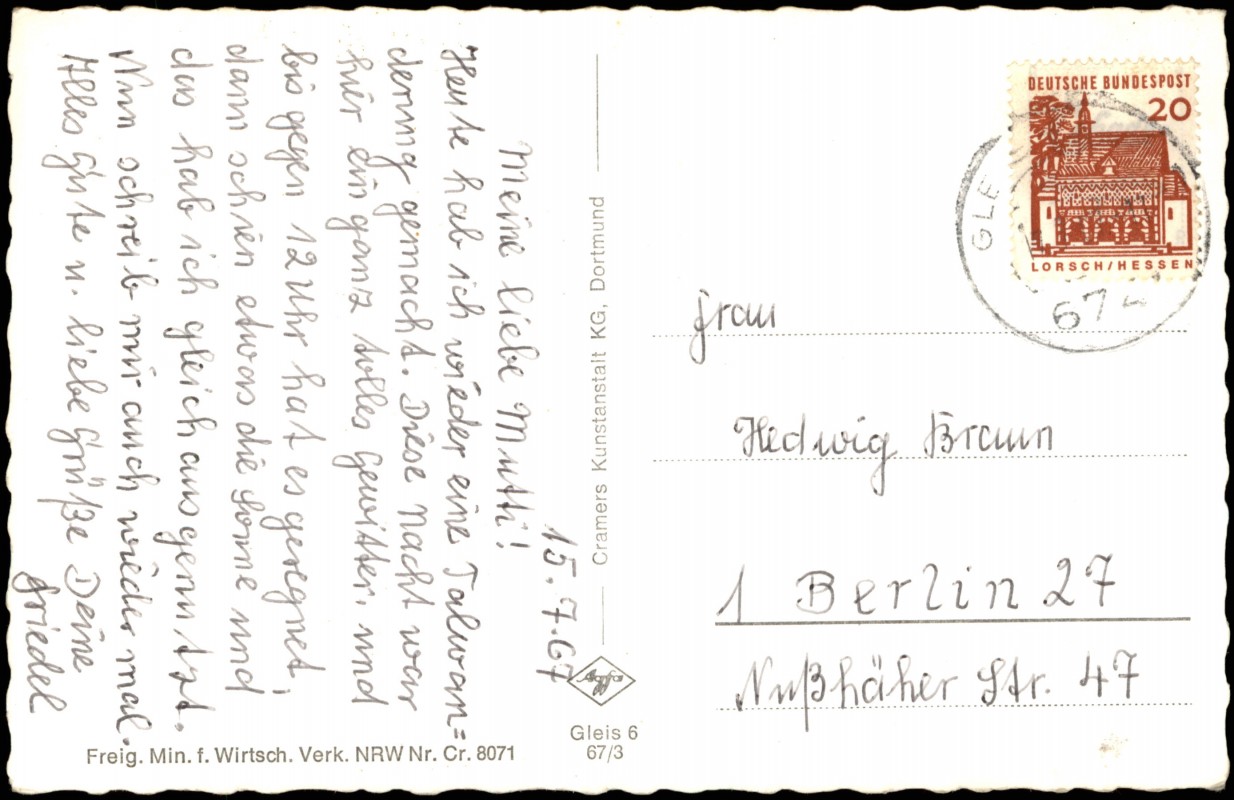 15.7.67
Meine liebe Mutti!
Heute hab ich wieder eine Talwan=
derung gemacht. Diese Nacht war
hier ein ganz tolles Gewitter, und
bis gegen 12 Uhr hat es geregnet,
dann schien etwas die Sonne und
das hab ich gleich ausgenutzt.
Nun schreib mir auch wieder mal.
Alles Gute u. liebe Grüße Deine
Friedel
Cramers Kunstanstalt KG, Dortmund
Gleis 6
67/3
Freig. Min. f. Wirtsch. Verk. NRW Nr. Cr. 8071
DEUTSCHE BUNDESPOST
20
LORSCH/HESSEN
GLE
674
Frau
Hedwig Braun
1 Berlin 27
Nußhäher Str. 47